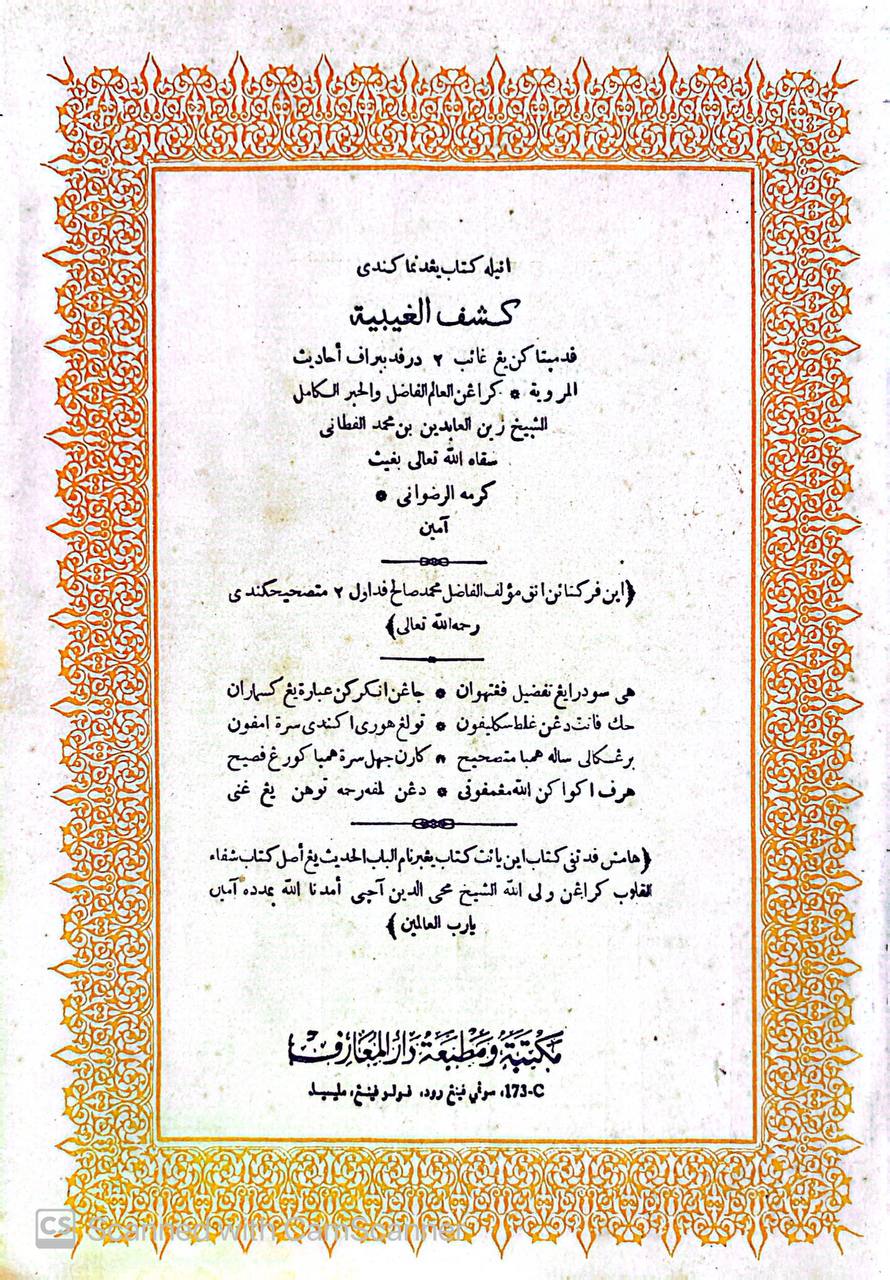 اڤبله كتاب يڠدنما كندى
كشف الغيبية
قدمپتاكن يڠ غائب ٢ درفد ببراف أحاديث
المروية * كراڠن العالم الفاضل والحبر الكامل
الشيخ زين العابدين بن محمد الفطانى
سقاه الله تعالى بغيث
كرمه الرضوانى *
آمين
﴿اين فركتائن انق مؤلف الفاضل محمد صالح فداول ٢ متصحيحكندى
رحمه الله تعالى﴾
هى سودرايڠ تفضيل ففتهوان * جاڠن انكركن عبارة يڠ كسهاران
حك فانت دڠن غلط سكليفون * تولڠ هورى اكندى سرة امفون
برڠكالى ساله همبا متصحيح * كارن جهل سرة همبا كورڠ فصيح
هرف اكو اكن الله مڠمفونى * دڠن لمفه رحمه توهن يڠ غنى
﴿هامش فد تفى كتاب اين يائت كتاب يڠبرنام الباب الحديث يڠ أصل كتاب شفاء
القلوب كراڠن ولى الله الشيخ محى الدين آچى أمدنا الله بمدده آمين
يارب العالمين﴾
مَكتَبَةُ وَمَطبَعَةُ دَارُ المَعَارِف
173-C، سوڠي فينڠ رود، فولو فينڠ، مليسيا
CS Scanned with CamScanner